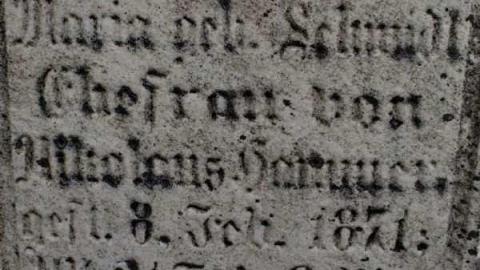 Maria geb. Schmidt
Ehefrau von
Nikolaus Hammer
gest. 8. Feb. 1871.